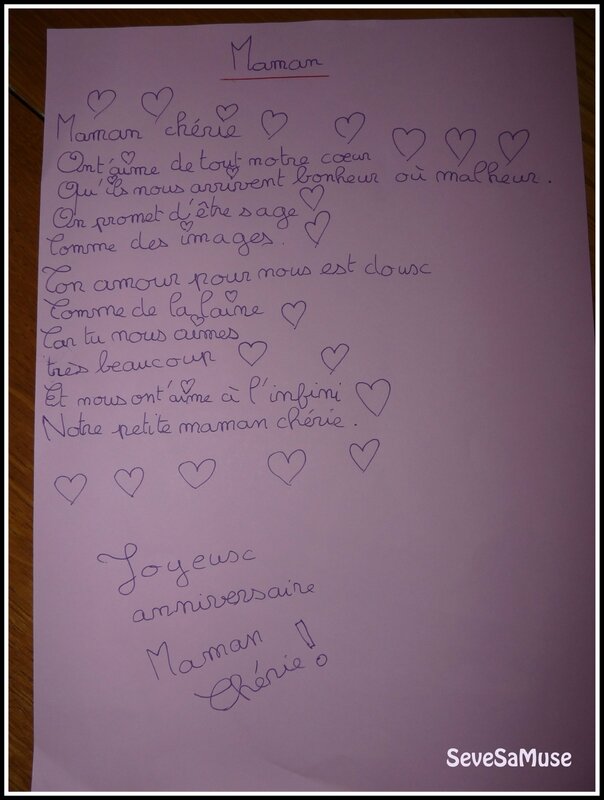 Maman
Maman chérie
Ont'aime de tout notre cœur
Qu'ils nous arrivent bonheur où malheur.
On promet d'être sage
Comme des images.
Ton amour pour nous est dousc
Comme de la laine
Car tu nous aimes
très beaucoup
Et nous ont'aime à l'infini
Notre petite maman chérie.
Joyeuse
anniversaire
Maman
Chérie!
SeveSaMuse